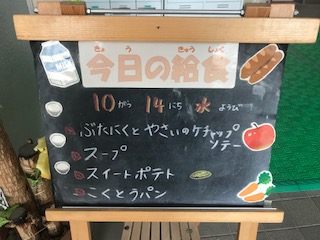 きょう きゅうしょく
今日の給食
10がつ 14にち 水ようび
ぶたにくとやさいのケチャップ
ソテー
スープ
スイートポテト
こくとうパン